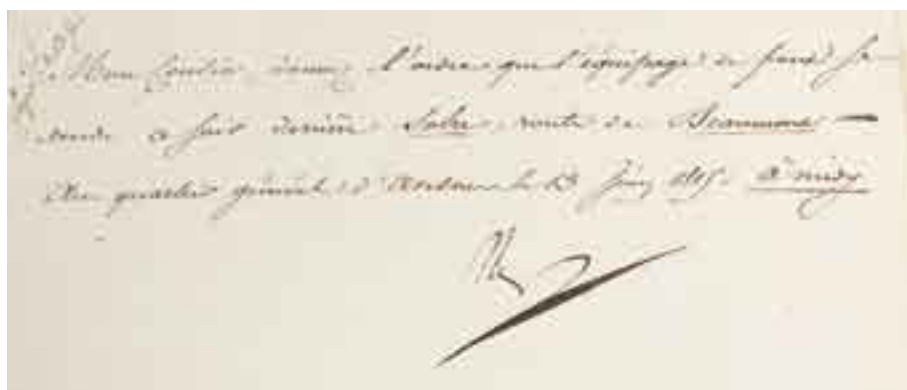 Mon Cousin donnez l'ordre que l'équipage de pont se
rende ce soir derrière Solre, route de Beaumont
Au quartier général d'Avesnes le 13 Juin 1815. à midy